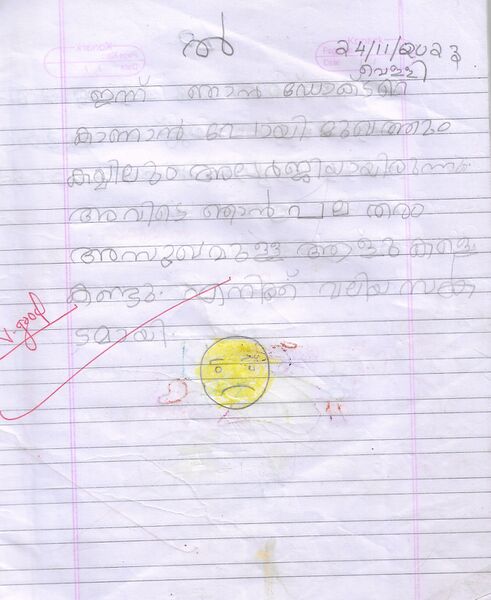 ൽ
24/11/2023
വെള്ളി
ഇന്ന് ഞാൻ ഡോക്ടറെ
കാണാൻ പോയി മുഖത്തും
കയ്യിലും അലർജ്ജിയായിരുന്നു.
അവിടെ ഞാൻ പല തരം
അസുഖമുള്ള ആളുകളെ
കണ്ടു. എനിക്ക് വലിയ സങ്ക
ടമായി.
V. good